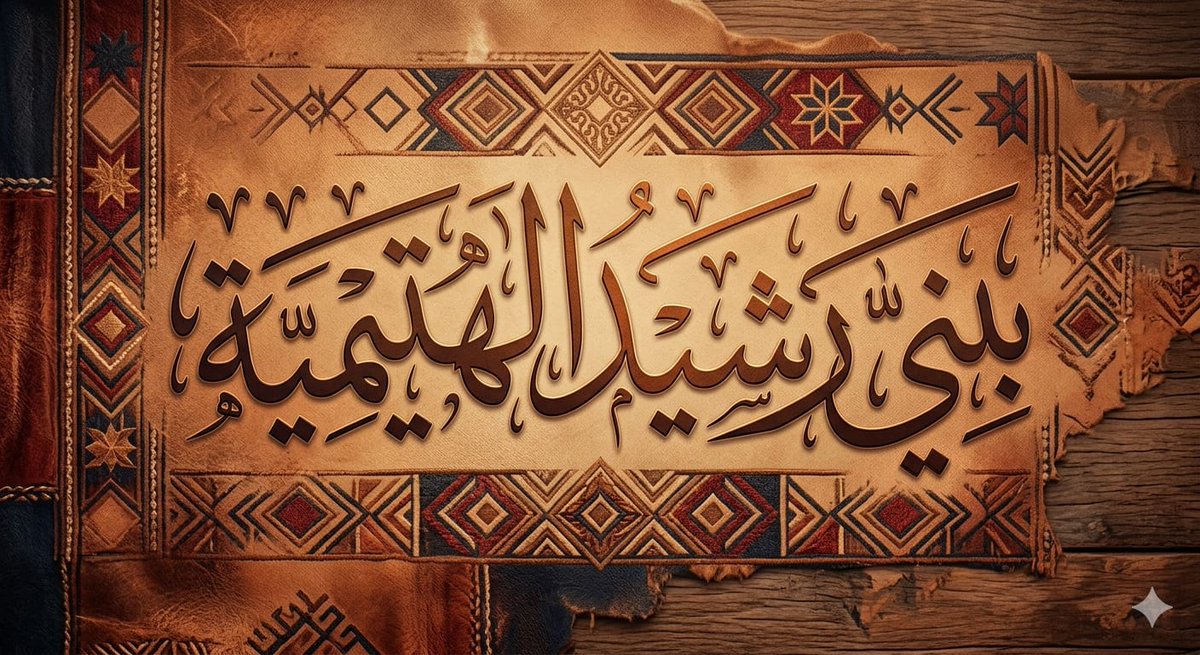 بِنِيّ رَشَيْدُ الهَُتَيْمِيَّة